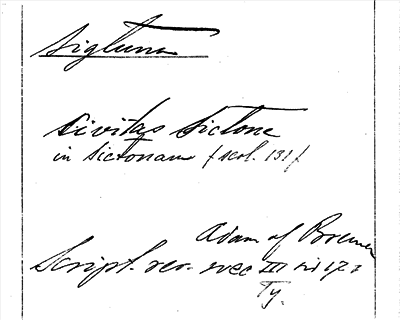 Sigtuna
Civitas Sictone
in Sictonam (scol. 131)
Adam af Bremen
Script. rer. svec III sid
Ty.